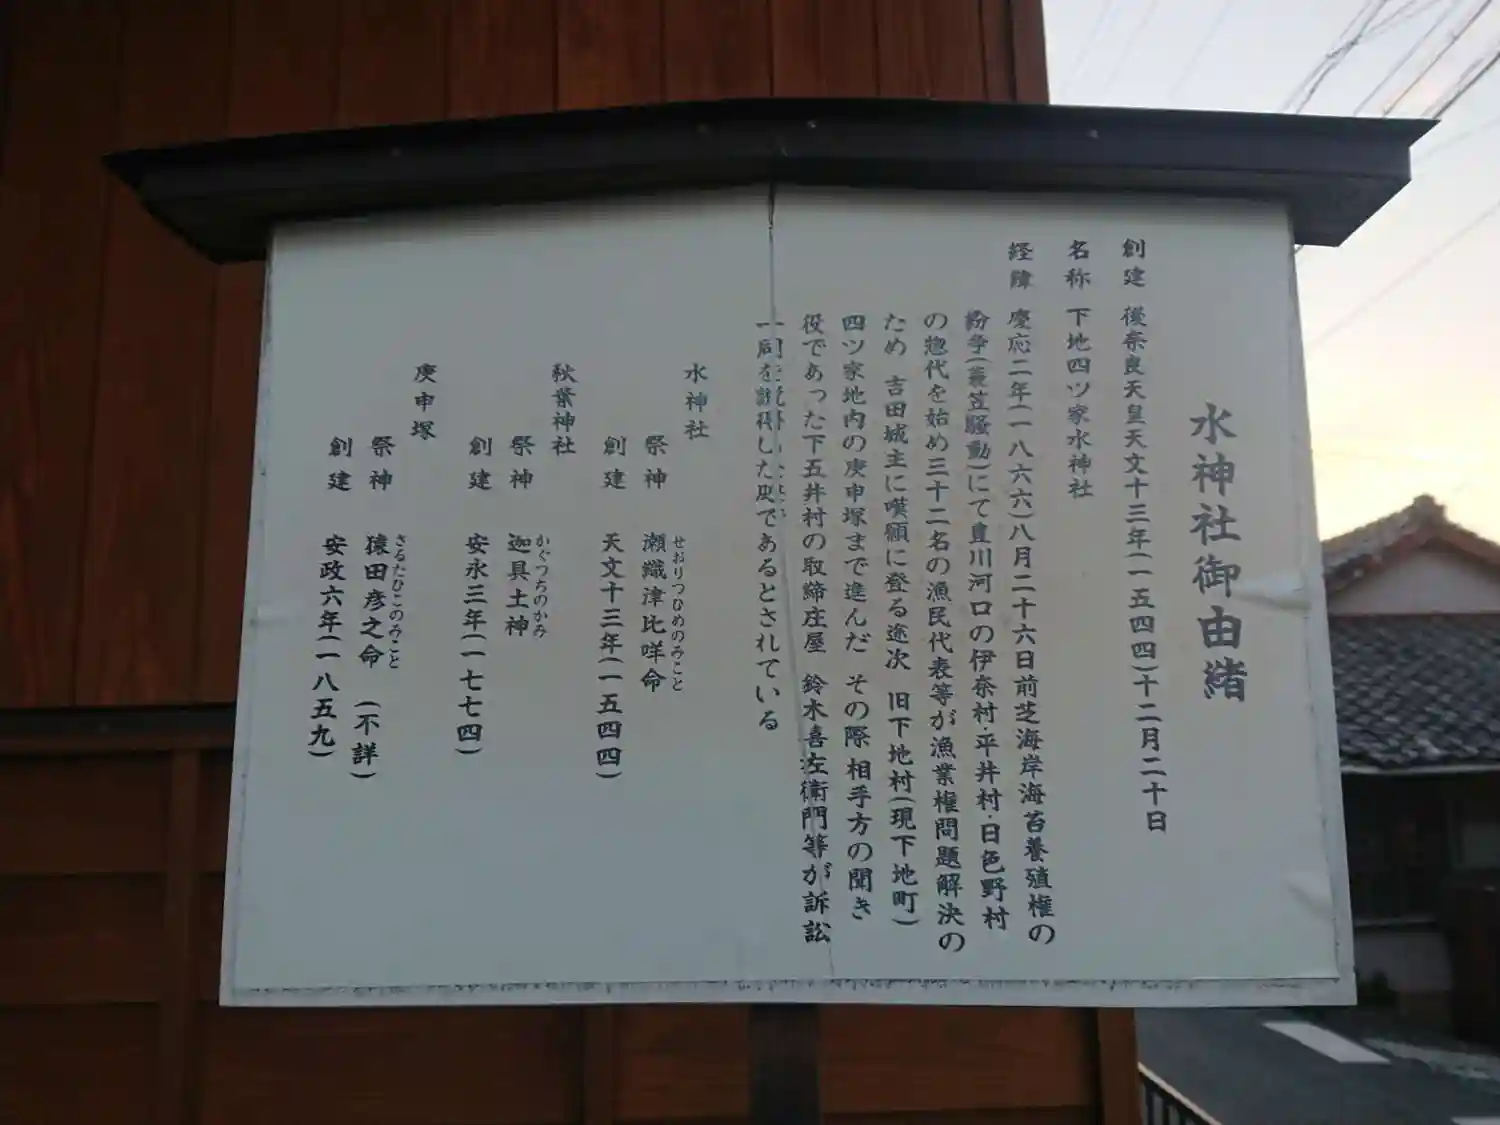 水神社御由緒
創建 後奈良天皇天文十三年(一五四四)十二月二十日
名称 下地四ツ家水神社
経緯 慶応二年(一八六六)八月二十六日前芝海岸海苔養殖権の
紛争(蓑笠騒動)にて豊川河口の伊奈村・平井村・日色野村
の惣代を始め三十二名の漁民代表等が漁業権問題解決の
ため 吉田城主に嘆願に登る途次 旧下地村(現下地町)
四ツ家地内の庚申塚まで進んだ その際相手方の聞き
役であった下五井村の取締庄屋 鈴木喜左衛門等が訴訟
一同を説得した所であるとされている
水神社
祭神 瀬織津比咩命
せおりつひめのみこと
創建 天文十三年(一五四四)
秋葉神社
祭神 迦具土神
かぐつちのかみ
創建 安永三年(一七七四)
庚申塚
祭神 猿田彦之命 (不詳)
さるたひこのみこと
創建 安政六年(一八五九)